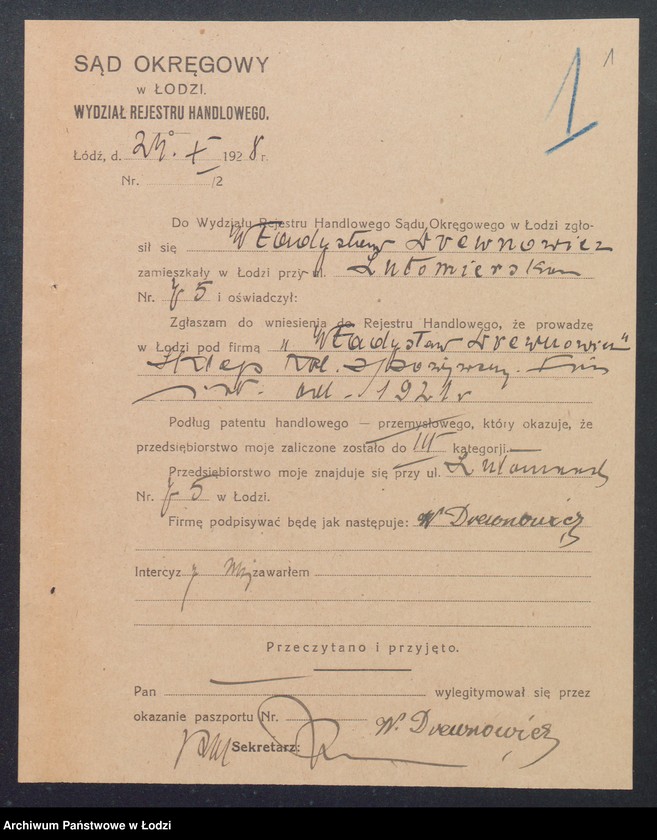 SĄD OKRĘGOWY
w ŁODZI.
WYDZIAŁ REJESTRU HANDLOWEGO.
1 1
Łódź, d. 24. X 1928 r.
Nr. /2
Do Wydziału Rejestru Handlowego Sądu Okręgowego w Łodzi zgło-
sił się Władysław Drewnowicz
zamieszkały w Łodzi przy ul. Lutomierska
Nr. 75 i oświadczył:
Zgłaszam do wniesienia do Rejestru Handlowego, że prowadzę
w Łodzi pod firmą „Władysław Drewnowicz"
Sklep Kol. Spożywczy.
od 1921 r
Podług patentu handlowego — przemysłowego, który okazuje, że
przedsiębiorstwo moje zaliczone zostało do III kategorji.
Przedsiębiorstwo moje znajduje się przy ul.
Nr. 75 w Łodzi.
Firmę podpisywać będę jak następuje: W Drewnowicz
Intercyzy nie zawarłem
Przeczytano i przyjęto.
Pan wylegitymował się przez
okazanie paszportu Nr. W. Drewnowicz
Sekretarz:
Archiwum Państwowe w Łodzi